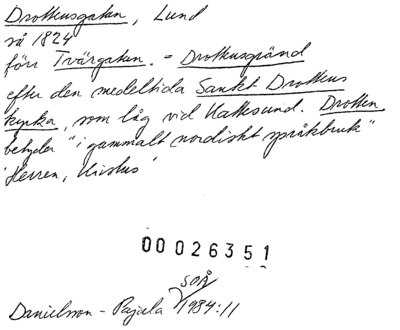 Drottensgatan, Lund
så 1824
förr Tvärgatan. = Drottensgränd
efter den medeltida Sankt Drottens
kyrka, som låg vid Kattesund. Drotten
betyder "i gammalt nordiskt språkbruk"
'Herren, Kristus'
00026351
SOÅ
Danielsson - Pajala 1984:11